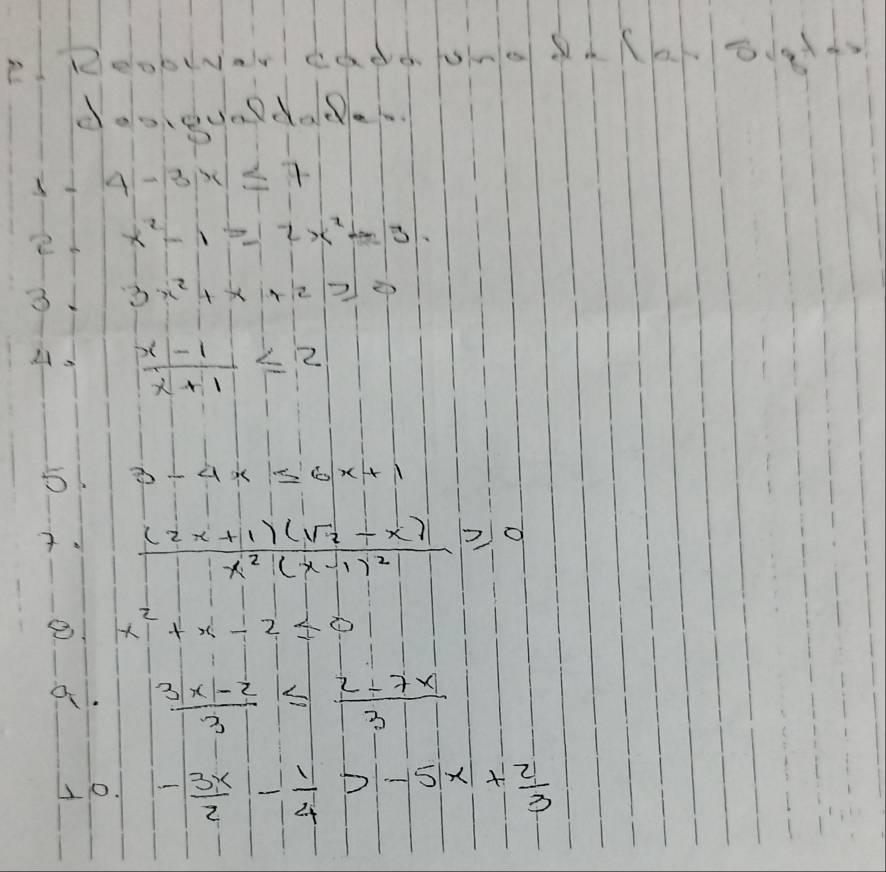 2. Resolver cada una de las sigtes
desigualdades.
1- 4-3x ≤ 7
2- x²-1 ≥ 2x²-3.
3. 3x²+x+2 ≥ 0
4. (x-1)/(x+1) ≤ 2
5. 3-4x ≤ 6x+1
7. ((2x+1)(√2-x))/(x²(x-1)²) ≥ 0
8. x²+x-2 ≤ 0
9. (3x-2)/3 ≤ (2-7x)/3
10. -3x/2 - 1/4 > -5x + 2/3